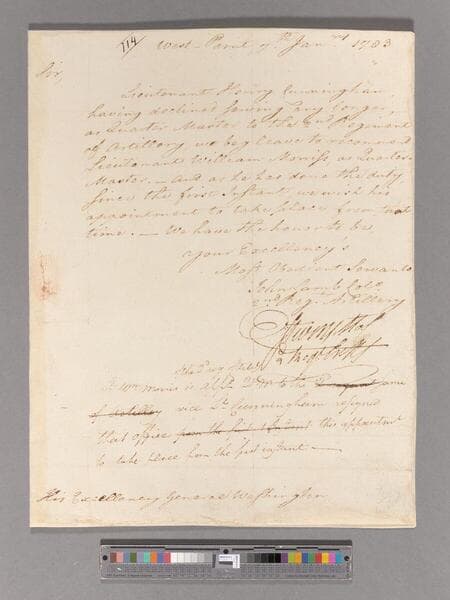 114
West-Point, 7th Janry 1783
Sir,
Lieutenant Henry Cunningham,
having declined serving any longer,
as Quarter Master to the 2nd Regiment
of Artillery, we beg leave to recommend
Lieutenant William Morriss as Quarter
Master. — And as he has done the duty
since the first Instant, we wish his
appointment to take place from that
time. — We have the honor to be,
Your Excellency's
Most Obedient Servants
John Lamb Colo
2nd Reg. Artillery
Lt Wm Morris is the
of Artillery vice Lt Cunningham resigned
that office from the first Instant this appointment
to take place from the first instant —
His Excellency General Washington